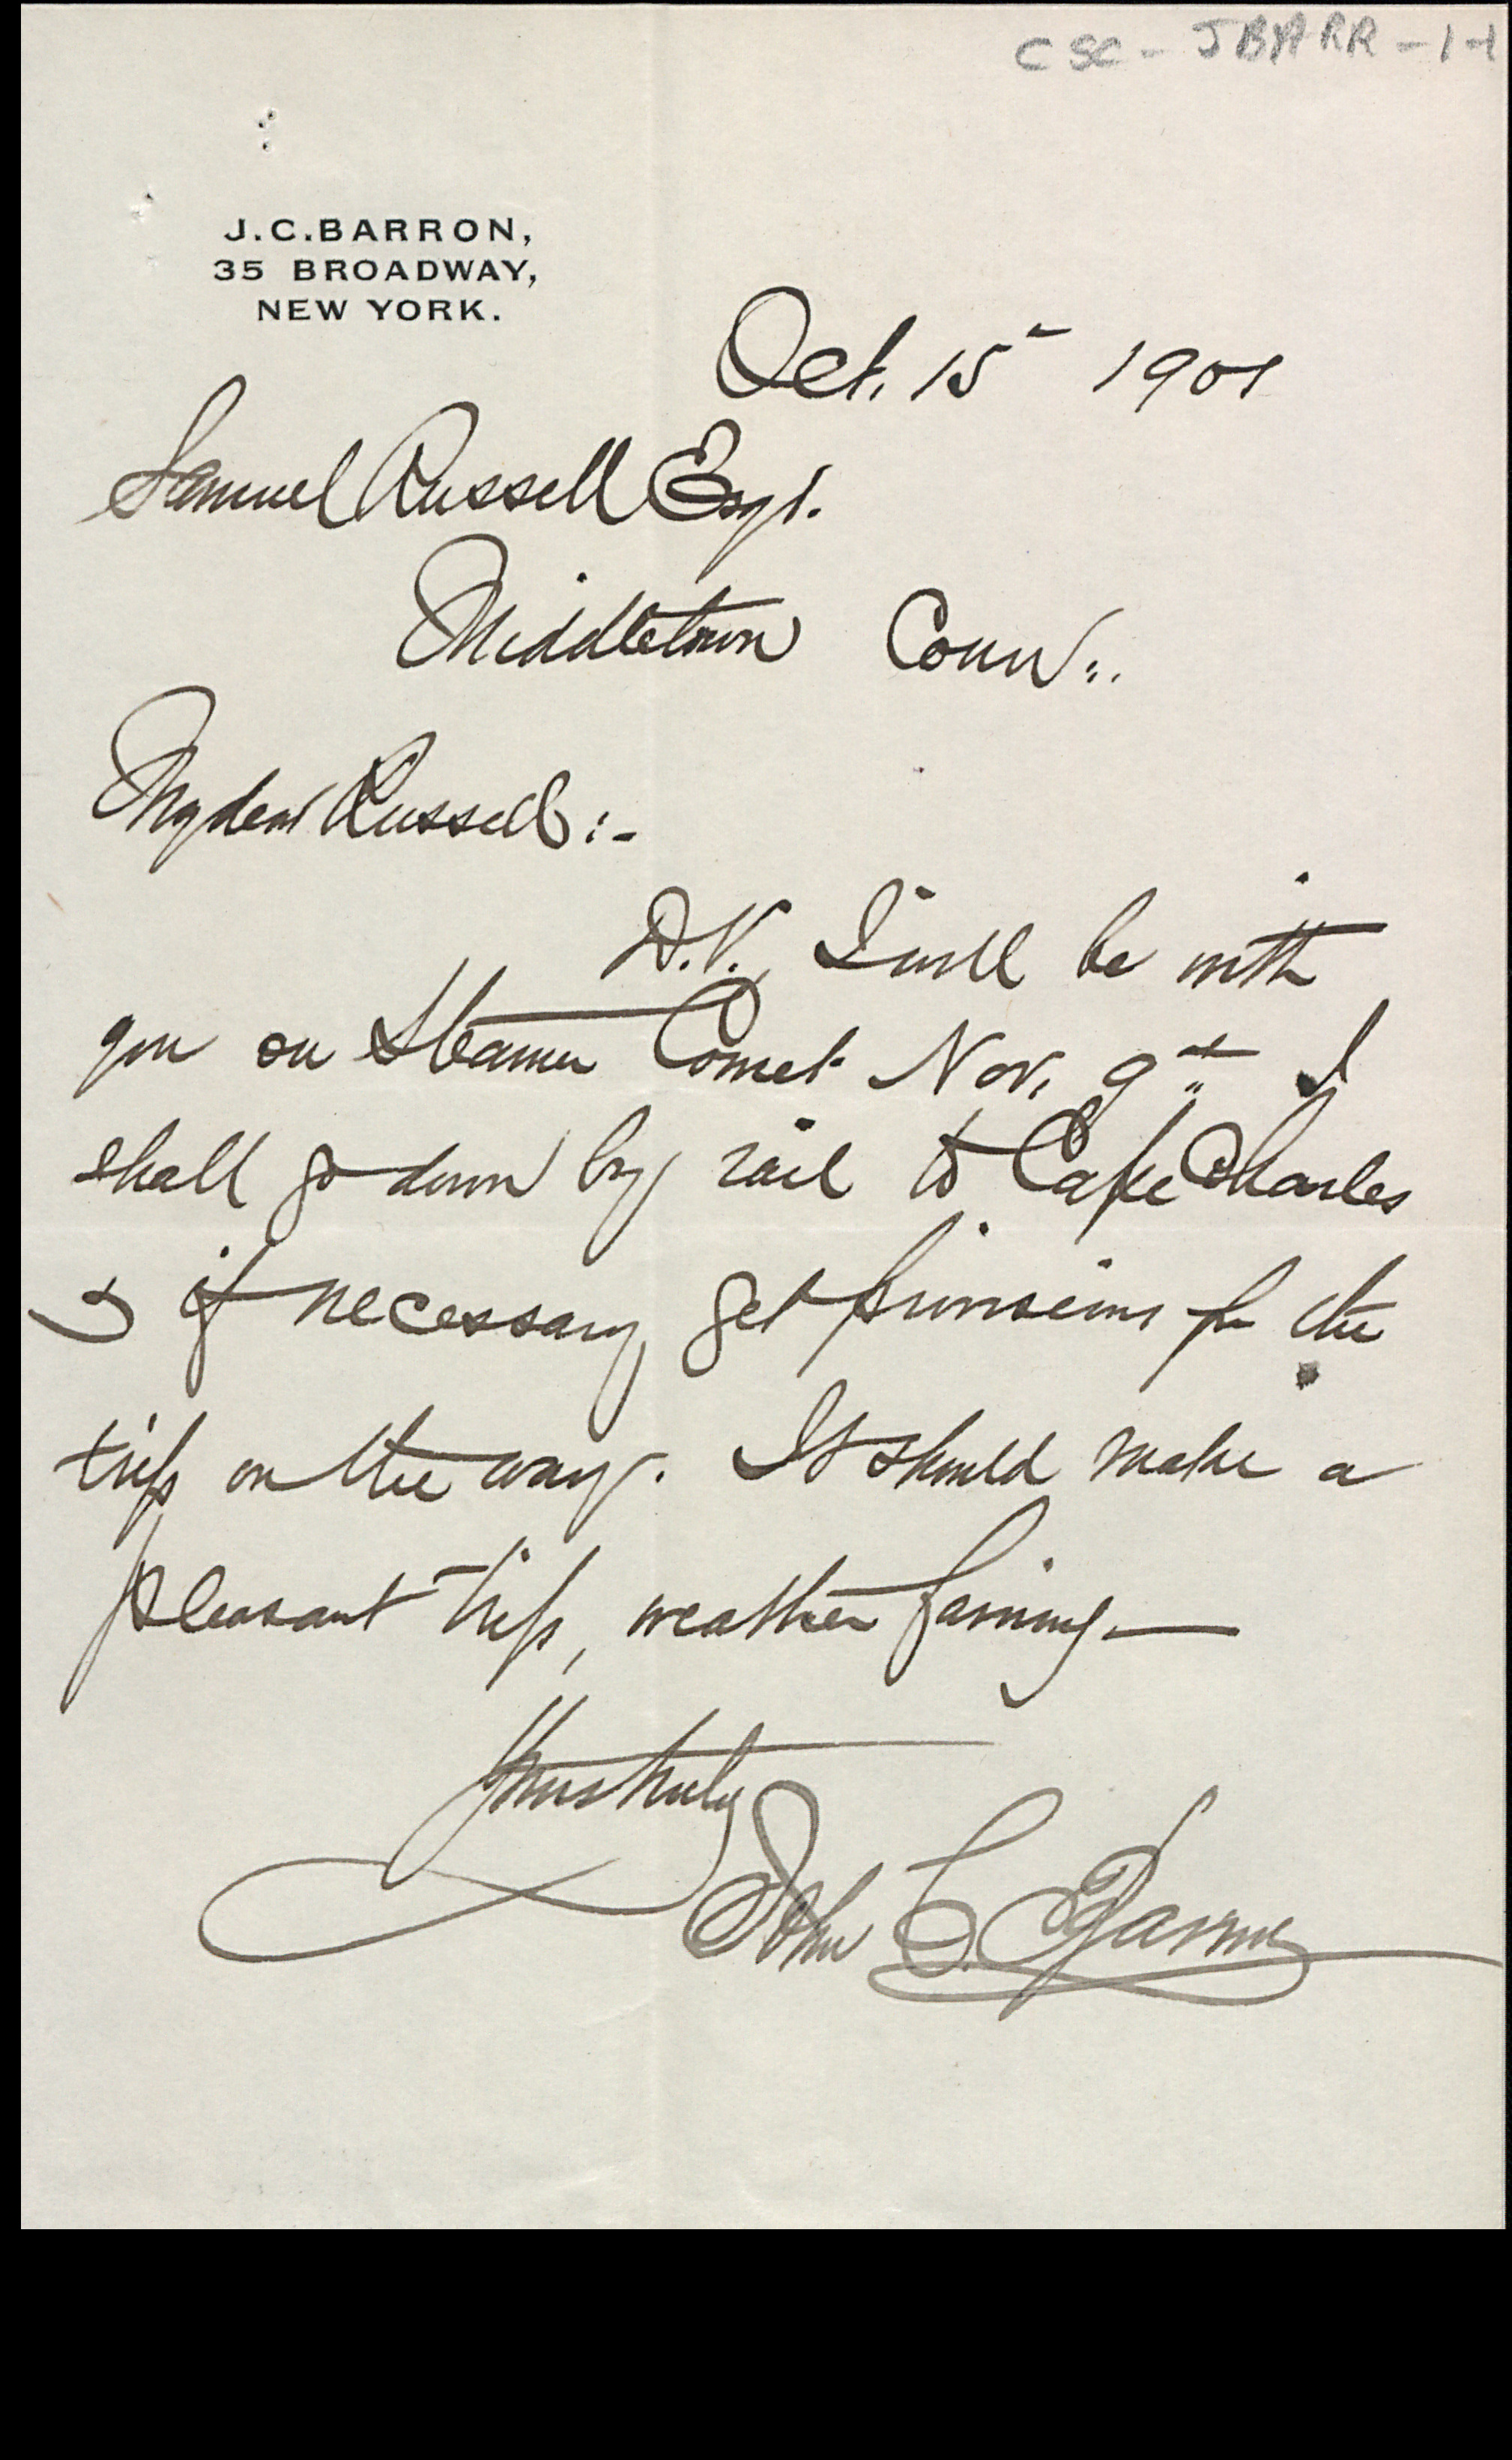 CSC - JBARR - 1-1
J.C. BARRON,
35 BROADWAY,
NEW YORK.
Oct. 15th 1901
Samuel Russell Esqr.
Middletown Conn..
My dear Russell :-
D.V. I will be with
you on Steamer Comet Nov. 9th I
shall go down by rail to Cape Charles
& if necessary get provisions for the
trip on the way. It should make a
pleasant trip, weather favoring.—
Yours truly
John C. Barron